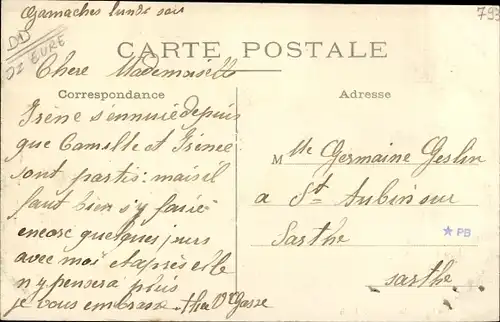 Gamaches lundi soir
793
DD
DZ EURE
CARTE POSTALE
Chere Mademoiselle
Correspondance
Adresse
Irène s'ennuie depuis
que Camille et Irénée
sont partis mais il
faut bien s'y faire
encore quelques jours
avec moi et après elle
n y pensera plus
je vous embrasse
Mlle Germaine Geslin
a St Aubin sur
Sarthe
PB
Sarthe